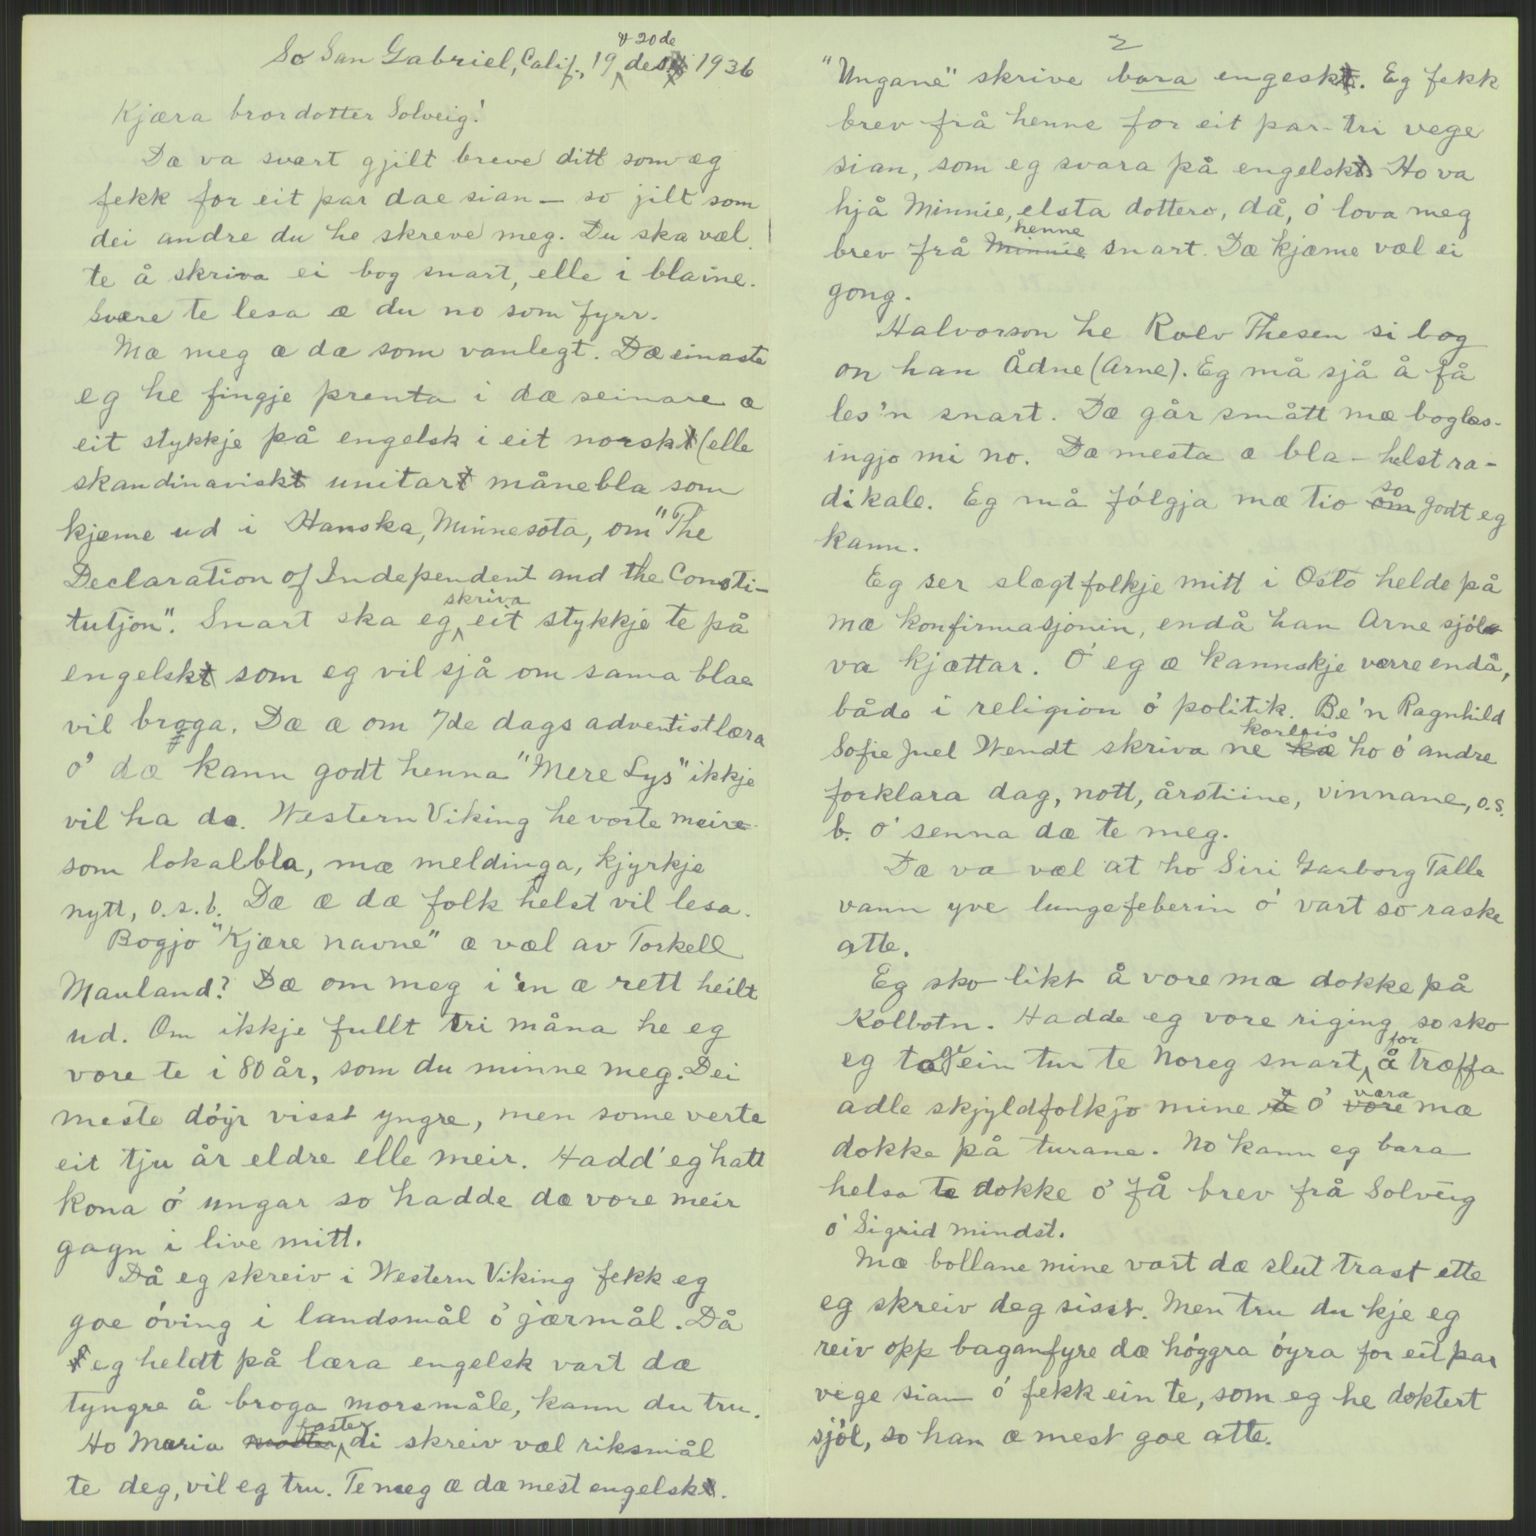 So San Gabriel, Calif., 19 & 20de des. 1936
Kjæra brordotter Solveig!
Dæ va svært gjilt breve ditt som eg
fekk for eit par dae sian — so jilt som
dei andre du he skreve meg. Du ska væl
te å skriva ei bog snart, elle i blaine.
Svære te lesa æ du no som fyrr.
Mæ meg æ dæ som vanlegt. Dæ einaste
eg he fingje prenta i dæ seinare æ
eit stykkje på engelsk i eit norsk (elle
skandinavisk unitar månebla som
kjæme ud i Hanska, Minnesota, om "The
Declaration of Independent and the Consti-
tutjon". Snart ska eg skriva eit stykkje te på
engelsk som eg vil sjå om sama blae
vil broga. Dæ æ om 7de dags adventistlæra
o' dæ kann godt henna "Mere Lys" ikkje
vil ha da. Western Viking he vorte meire
som lokalbla, mæ meldinga, kjyrkje
nytt, o.s.b. Dæ æ dæ folk helst vil lesa.
Bogjo "Kjære navne" æ væl av Torkell
Mauland? Dæ om meg i 'n æ rett heilt
ud. Om ikkje fullt tri måna he eg
vore te i 80 år, som du minne meg. Dei
meste döyr visst yngre, men some verte
eit tju år eldre elle meir. Hadd' eg hatt
kona o' ungar so hadde da vore meir
gagn i live mitt.
Då eg skreiv i Western Viking fekk eg
goe öving i landsmål o' jærmål. Då
eg heldt på læra engelsk vart dæ
tyngre å broga morsmåle, kann du tru.
Ho Maria faster di skreiv væl riksmål
te deg, vil eg tru. Te meg æ dæ mest engelsk.
2
"Ungane" skrive bara engesk. Eg fekk
brev frå henne for eit par-tri vege
sian, som eg svara på engelsk. Ho va
hjå Minnie, elsta dottero, då, o' lova meg
brev frå henne snart. Dæ kjæme væl ei
gong.
Halvorson he Rolv Thesen si bog
on han Ådne (Arne). Eg må sjå å få
les'n snart. Dæ går smått mæ boglæs-
ingjo mi no. Dæ mesta æ bla — helst ra-
dikale. Eg må fólgja mæ tio so godt eg
kann.
Eg ser slægtfolkje mitt i Oslo helde på
mæ konfirmasjonin, endå han Arne sjól
va kjættar. O' eg æ kannskje værre endå,
både i religion o' politik. Be'n Ragnhild
Sofie Juel Wendt skriva ne korleis ho o' andre
forklara dag, nott, årstiine, vinnane, o.s.
b. o' senna dæ te meg.
Dæ va væl at ho Siri Gaaborg Talle
vann yve lungefeberin o' vart so raske
atte.
Eg sko likt å vore mæ dokke på
Kolbotn. Hadde eg vore riging so sko
eg tage ein tur te Noreg snart, for å træffa
adle skjyldfolkjo mine o' væra mæ
dokke på turane. No kann eg bara
helsa te dokke o' få brev frå Solveig
o' Sigrid mindst.
Mæ bollane mine vart dæ slut trast ette
eg skreiv deg sisst. Men tru du kje eg
reiv opp baganfyre dæ höggra öyra for eit par
vege sian o' fekk ein te, som eg he doktert
sjól, so han æ mest goe atte.